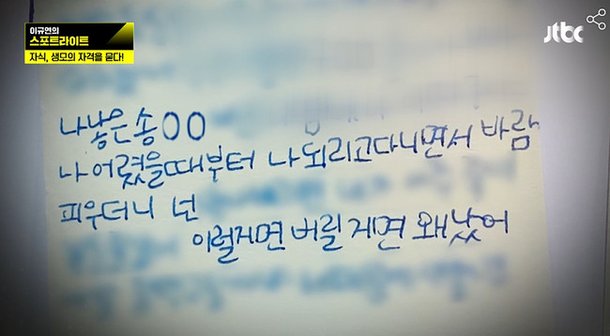 이규연의
스포트라이트
자식, 생모의 자격을 묻다!
jtbc
나 낳은 송OO
나 어렸을때부터 나 되리고다니면서 바람
피우더니 넌
이럴게면 버릴 게면 왜 났어